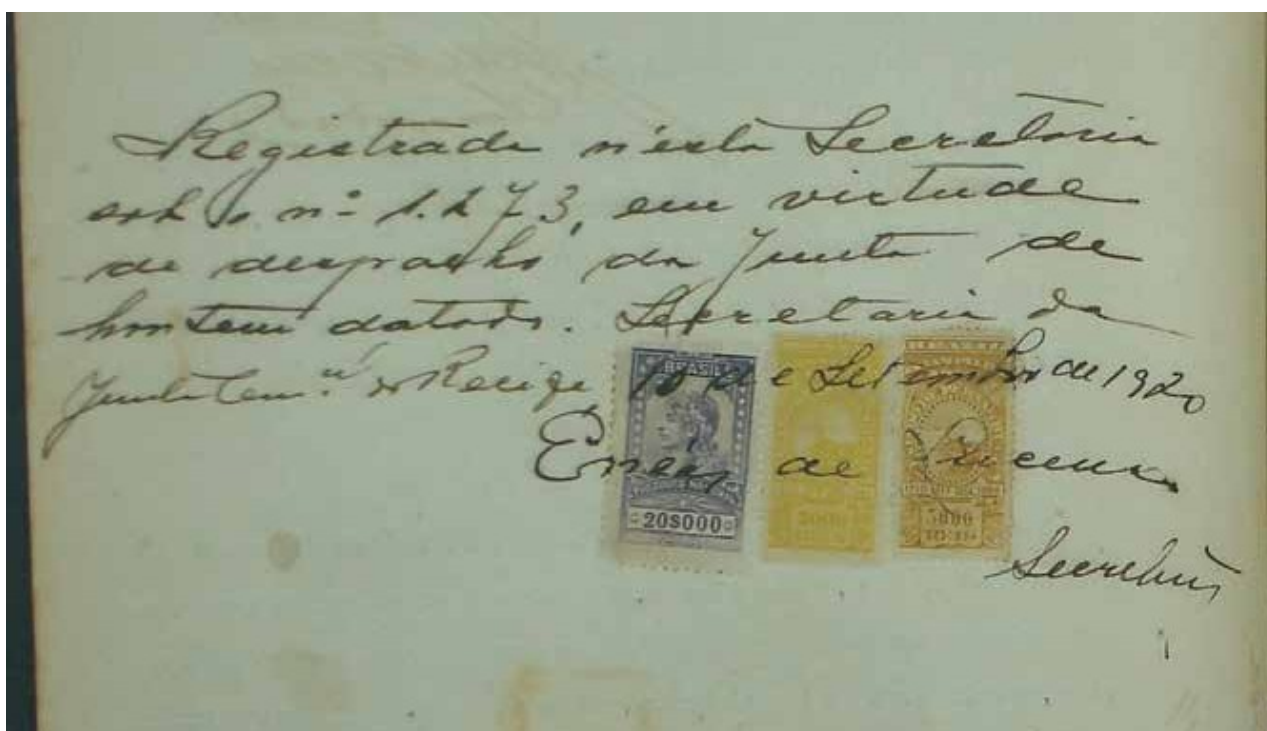 Registrada n'esta Secretaria
sob o nº 1.273, em virtude
de despacho da Junta de
hontem datado. Secretaria da
Junta Com.al do Recife 10 de Setembro de 1920
Enéas de Lucena
Secretario
20$000
2000
5000